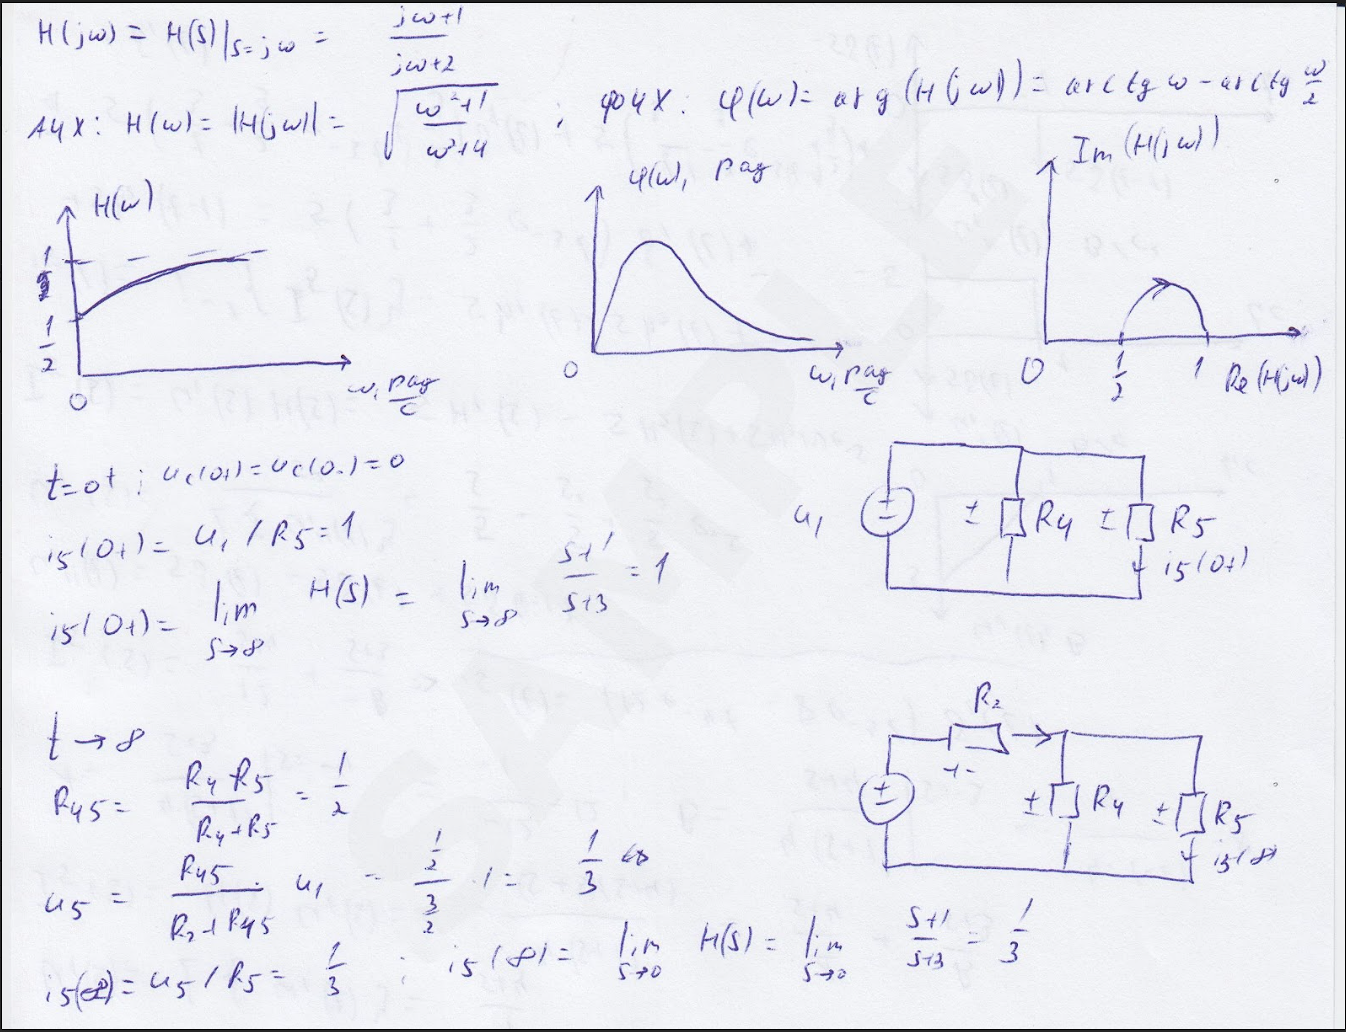 H(jω) = H(S)|S=jω = jω+1 / jω+2
АЧХ: H(ω) = |H(jω)| = √(ω²+1 / ω²+4) ; ФЧХ: φ(ω) = arg(H(jω)) = arctg ω - arctg ω/2
H(ω)
1
1/2
0
ω, рад/с
φ(ω), рад
0
ω, рад/с
Im(H(jω))
0
1/2
1
Re(H(jω))
t=0+ ; uc(0+) = uc(0-) = 0
i5(0+) = u1 / R5 = 1
i5(0+) = lim S→∞ H(S) = lim S→∞ S+1 / S+3 = 1
u1 ± ± R4 ± R5
i5(0+)
t → ∞
R45 = R4 R5 / R4+R5 = 1/2
u5 = R45 / R2+R45 · u1 = 1/2 / 3/2 · 1 = 1/3
i5(∞) = u5 / R5 = 1/3 ; i5(∞) = lim S→0 H(S) = lim S→0 S+1 / S+3 = 1/3
R2
+ -
± ± R4 ± R5
i5(∞)
SAMPLE